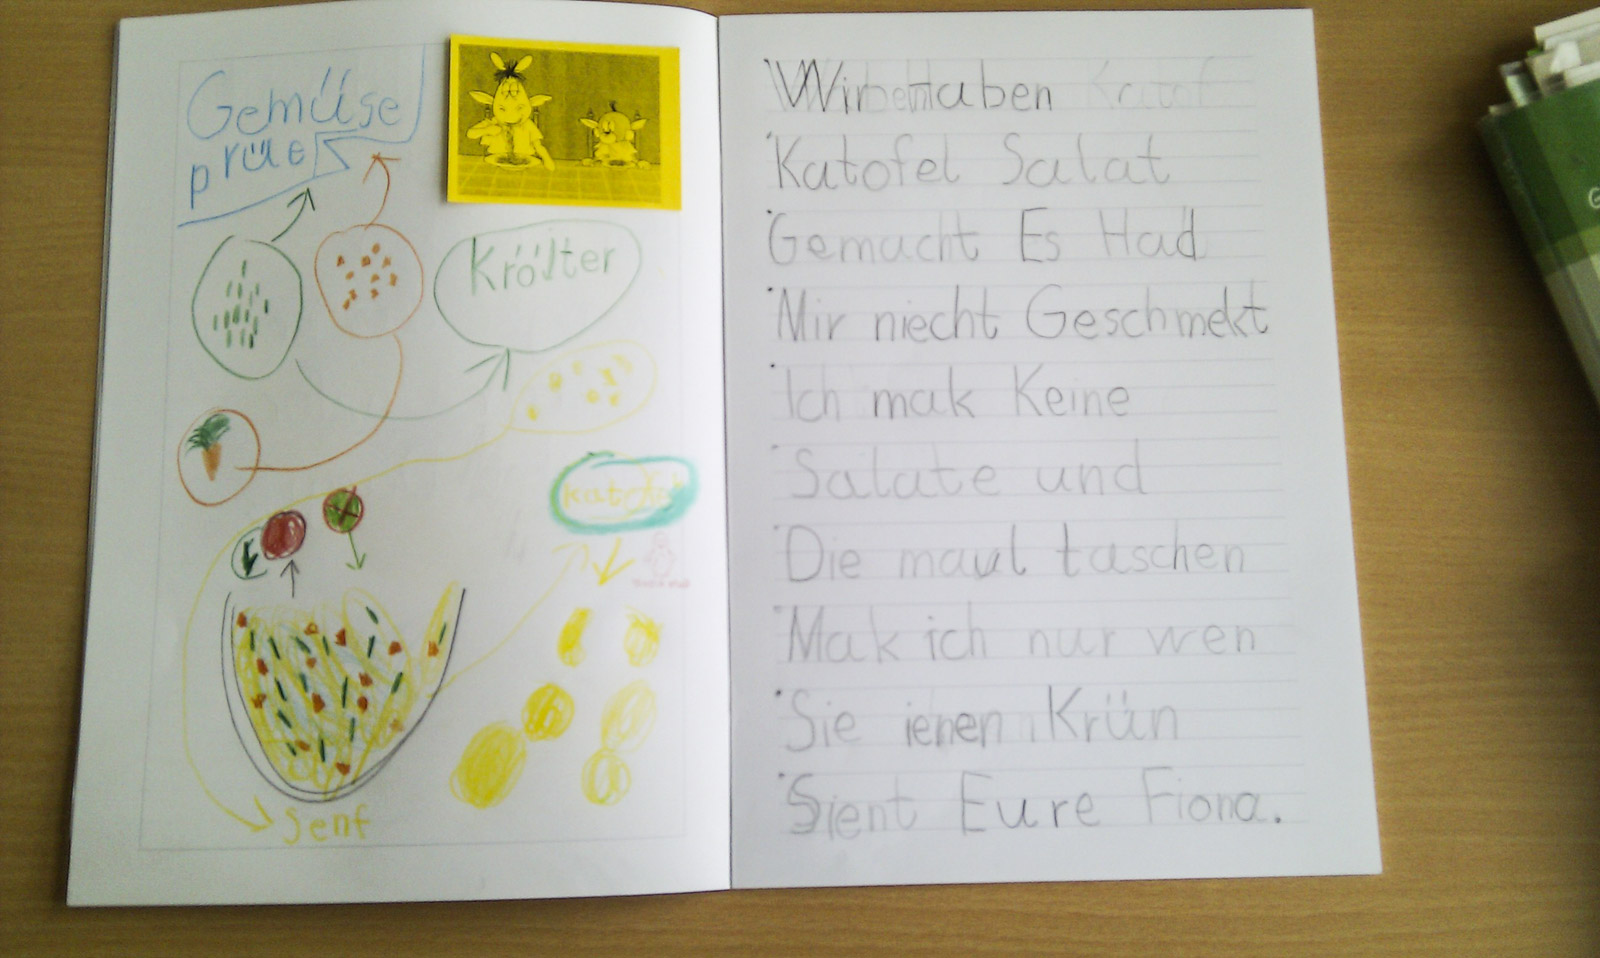 Gemüse
prüe
Kröiter
Senf
Wir haben
Katofel Salat
Gemacht Es Had
Mir niecht Geschmekt
Ich mak Keine
Salate und
Die maul taschen
Mak ich nur wen
Sie ienen Krün
Sient Eure Fiona.